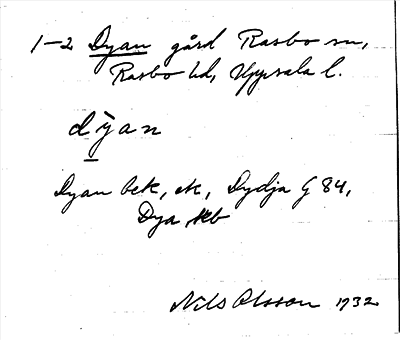 1-2 Dyan gård Rasbo sn,
Rasbo hd, Uppsala l.
dỳan
Dyan bek, ek, Dydja G 84,
Dya, Jkb
Nils Olsson 1932